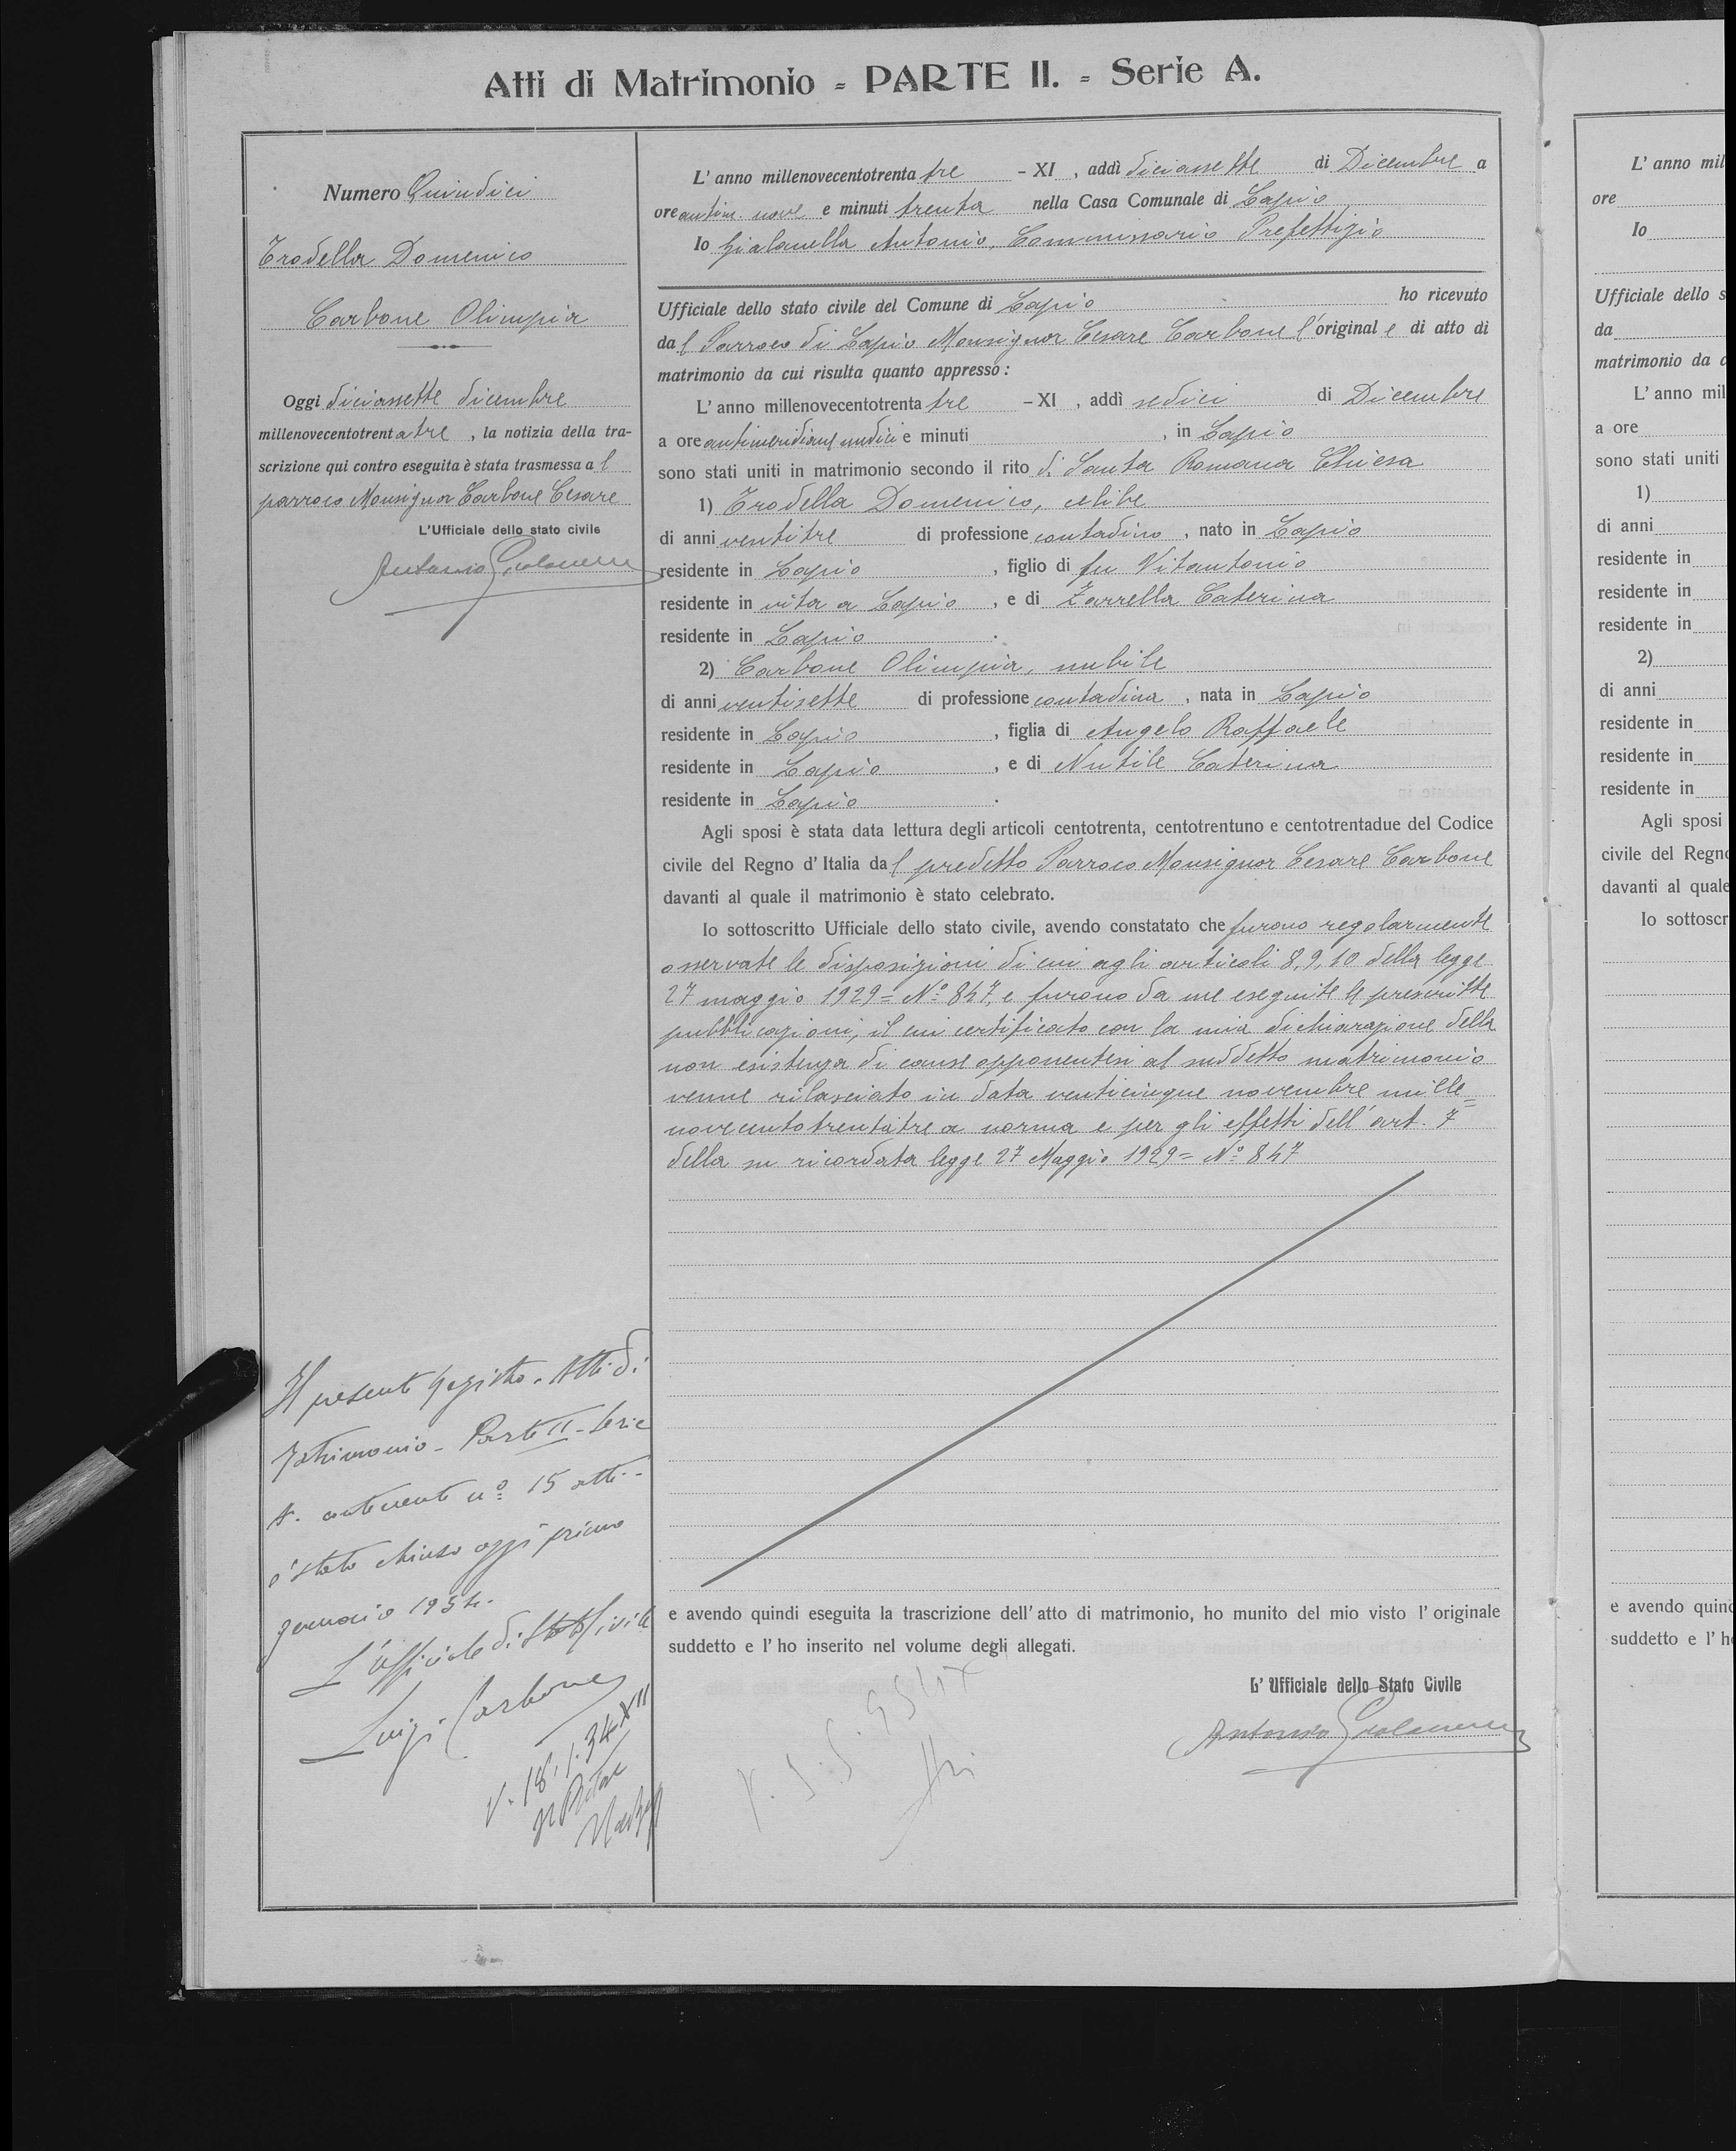 Atti di Matrimonio = PARTE II. = Serie A.
Numero Quindici
Trodella Domenico
Carbone Olimpia
Oggi diciassette dicembre
millenovecentotrentatre, la notizia della tra-
scrizione qui contro eseguita è stata trasmessa al
parroco Monsignor Carbone Cesare
L'Ufficiale dello stato civile
Antonio Gialanella
Il presente Registro. Atti di
Matrimonio - Parte II - Serie
A. contenente nº 15 atti -
è stato chiuso oggi primo
gennaio 1934.
L'Ufficiale di Stato Civile
Luigi Carbone
V. 18.1.34 XII
Il Pretore
L' anno millenovecentotrentatre - XI, addì diciassette di Dicembre a
ore antim. nove e minuti trenta nella Casa Comunale di Lapio
Io Gialanella Antonio, Commissario Prefettizio
Ufficiale dello stato civile del Comune di Lapio ho ricevuto
dal Parroco di Lapio Monsignor Cesare Carbone l'originale di atto di
matrimonio da cui risulta quanto appresso:
L' anno millenovecentotrentatre - XI, addì sedici di Dicembre
a ore antimeridiane undici e minuti , in Lapio
sono stati uniti in matrimonio secondo il rito di Santa Romana Chiesa
1) Trodella Domenico, celibe
di anni ventitre di professione contadino, nato in Lapio
residente in Lapio, figlio di fu Vitantonio
residente in vita a Lapio, e di Zarrella Caterina
residente in Lapio.
2) Carbone Olimpia, nubile
di anni ventisette di professione contadina, nata in Lapio
residente in Lapio, figlia di Angelo Raffaele
residente in Lapio, e di Nutile Caterina
residente in Lapio.
Agli sposi è stata data lettura degli articoli centotrenta, centotrentuno e centotrentadue del Codice
civile del Regno d' Italia dal predetto Parroco Monsignor Cesare Carbone
davanti al quale il matrimonio è stato celebrato.
Io sottoscritto Ufficiale dello stato civile, avendo constatato che furono regolarmente
osservate le disposizioni di cui agli articoli 8, 9, 10 della legge
27 maggio 1929 = Nº 847, e furono da me eseguite le prescritte
pubblicazioni, il cui certificato con la mia dichiarazione della
non esistenza di cause opponentesi al suddetto matrimonio
venne rilasciato in data venticinque novembre mille=
novecentotrentatre a norma e per gli effetti dell' art. 7
della su ricordata legge 27 Maggio 1929 = Nº 847
e avendo quindi eseguita la trascrizione dell' atto di matrimonio, ho munito del mio visto l' originale
suddetto e l' ho inserito nel volume degli allegati.
L' Ufficiale dello Stato Civile
Antonio Gialanella
L' anno mil
ore
Io
Ufficiale dello s
da
matrimonio da c
L' anno mil
a ore
sono stati uniti
1)
di anni
residente in
residente in
residente in
2)
di anni
residente in
residente in
residente in
Agli sposi
civile del Regno
davanti al quale
Io sottoscr
e avendo quind
suddetto e l' h